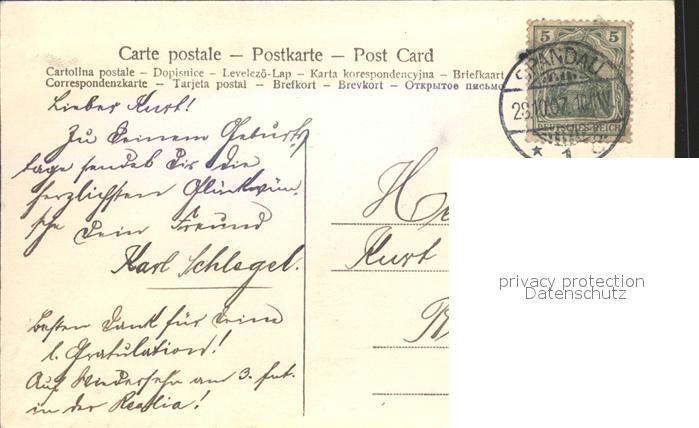 Carte postale – Postkarte – Post Card
Cartolina postale – Dopisnice – Levelező-Lap – Karta korespondencyjna – Briefkaart
Correspondenzkarte – Tarjeta postal – Brefkort – Brevkort – Открытое письмо
5 5
SPANDAU
28.10.07.
DEUTSCHES REICH
* 1
Lieber Kurt!
Zu Deinem Geburts-
tage sendet Dir die
herzlichsten Glückwün-
sche Dein Freund
Karl Schlegel.
Besten Dank für Deine
l. Gratulation!
Auf Wiedersehn am 3.
in der Realia!
Kurt
privacy protection
Datenschutz